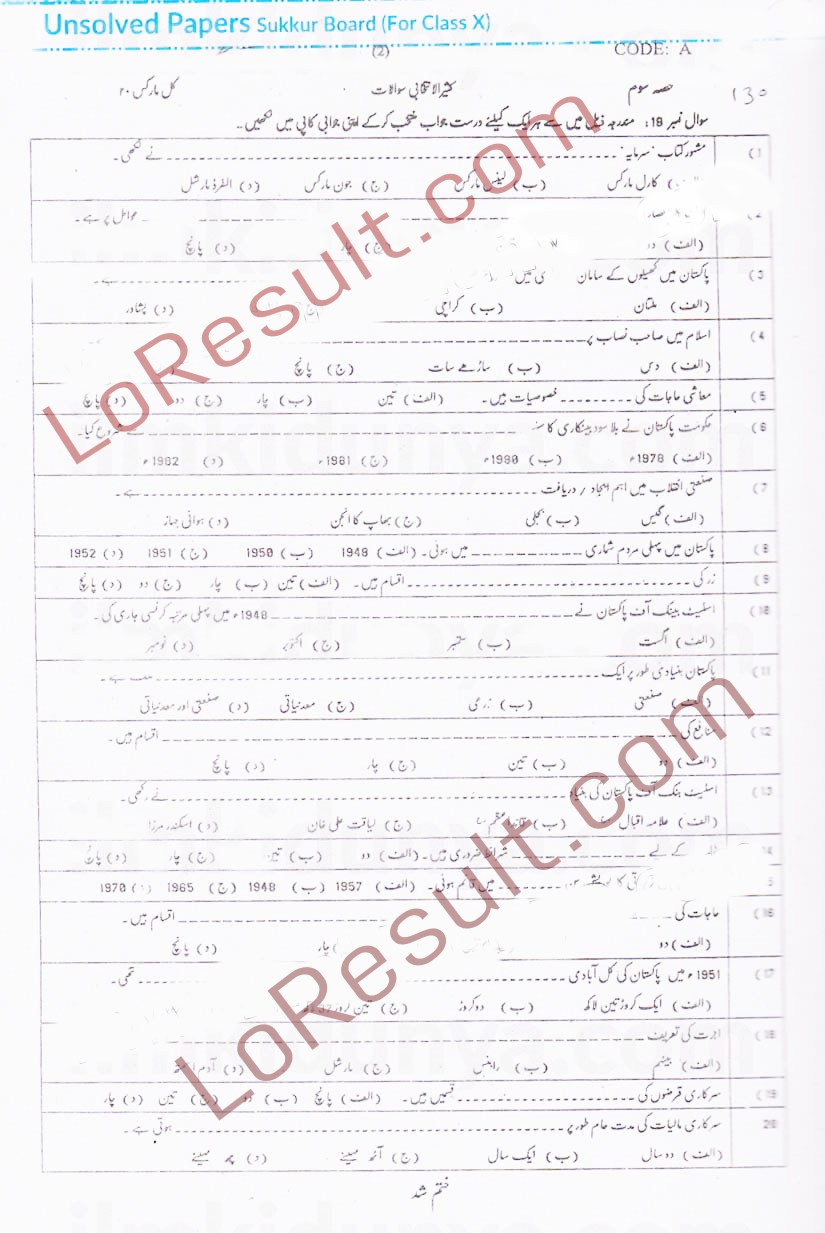 Unsolved Papers Sukkur Board (For Class X)
(2) CODE: A
130 حصہ سوم کثیر الانتخابی سوالات کل مارکس ۲۰
سوال نمبر 19: مندرجہ ذیل میں سے ہر ایک کیلئے درست جواب منتخب کرکے اپنی جوابی کاپی میں لکھیں۔
(1 مشہور کتاب "سرمایہ" ـــــــــ نے لکھی۔
کارل مارکس (ب) لینس مارکس (ج) جون مارکس (د) الفرڈ مارشل
(2 ـــــــــ عوامل پر ہے۔
(الف) دو (ج) چار (د) پانچ
(3 پاکستان میں کھیلوں کے سامان ـــــــــ ہے۔
(الف) ملتان (ب) کراچی (د) پشاور
(4 اسلام میں صاحب نصاب پر ـــــــــ
(الف) دس (ب) ساڑھے سات (ج) پانچ
(5 معاشی حاجات کی ـــــــــ خصوصیات ہیں۔ (الف) تین (ب) چار (ج) دو (د) پانچ
(6 حکومت پاکستان نے بلا سود بینکاری کا ـــــــــ سے شروع کیا۔
(الف) 1978ء (ب) 1980ء (ج) 1981ء (د) 1982ء
(7 صنعتی انقلاب میں اہم ایجاد / دریافت ـــــــــ ہے۔
(الف) گیس (ب) بجلی (ج) بھاپ کا انجن (د) ہوائی جہاز
(8 پاکستان میں پہلی مردم شماری ـــــــــ میں ہوئی۔ (الف) 1948 (ب) 1950 (ج) 1951 (د) 1952
(9 زر کی ـــــــــ اقسام ہیں۔ (الف) تین (ب) چار (ج) دو (د) پانچ
(10 اسٹیٹ بینک آف پاکستان نے ـــــــــ 1948ء میں پہلی مرتبہ کرنسی جاری کی۔
(الف) اگست (ب) ستمبر (ج) اکتوبر (د) نومبر
(11 پاکستان بنیادی طور پر ایک ـــــــــ ہے۔
(الف) صنعتی (ب) زرعی (ج) معدنیاتی (د) صنعتی اور معدنیاتی
(12 منافع کی ـــــــــ اقسام ہیں۔
(الف) دو (ب) تین (ج) چار (د) پانچ
(13 اسٹیٹ بنک آف پاکستان کی بنیاد ـــــــــ نے رکھی۔
(الف) علامہ اقبال (ب) قائداعظم (ج) لیاقت علی خان (د) اسکندر مرزا
14 کے لیے ـــــــــ شرائط ضروری ہیں۔ (الف) دو (ب) تین (ج) چار (د) پانچ
5 ـــــــــ میں قائم ہوئی۔ (الف) 1957 (ب) 1948 (ج) 1965 1970
(16 حاجات کی ـــــــــ اقسام ہیں۔
(الف) دو چار (د) پانچ
(17 1951ء میں پاکستان کی کل آبادی ـــــــــ تھی۔
(الف) ایک کروڑ تین لاکھ (ب) دو کروڑ (ج) تین کروڑ
(18 اجرت کی تعریف ـــــــــ
(الف) بینہم (ب) رابنس (ج) مارشل (د) آدم اسمتھ
(19 سرکاری قرضوں کی ـــــــــ قسمیں ہیں۔ (الف) پانچ (ب) دو (ج) تین (د) چار
20 سرکاری مالیات کی مدت عام طور پر ـــــــــ ہوتی ہے۔
(الف) دو سال (ب) ایک سال (ج) آٹھ مہینے (د) چھ مہینے
ختم شد
LoResult.com
LoResult.com
ilmkidunya.com